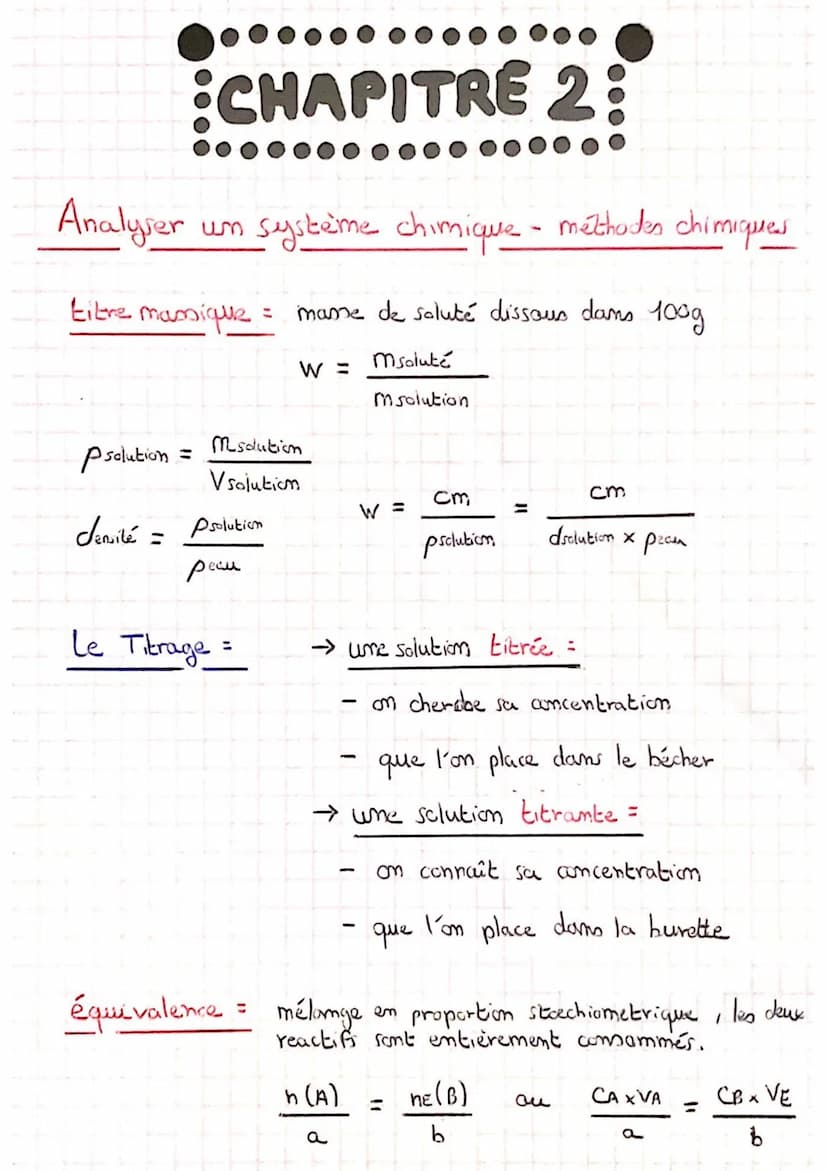 CHAPITRE 2
Analyser un système chimique - méthodes chimiques
titre massique = masse de soluté dissous dans 100g
w = msoluté / msolution
ρsolution = msolution / Vsolution
w = cm / ρsolution = cm / dsolution × ρeau
densité = ρsolution / ρeau
Le Titrage =
→ une solution titrée =
- on cherche sa concentration
- que l'on place dans le bécher
→ une solution titrante =
- on connaît sa concentration
- que l'on place dans la burette
équivalence = mélange en proportion stoechiometrique, les deux
reactifs sont entièrement consommés.
n(A) / a = nE(B) / b ou CA×VA / a = CB×VE / b